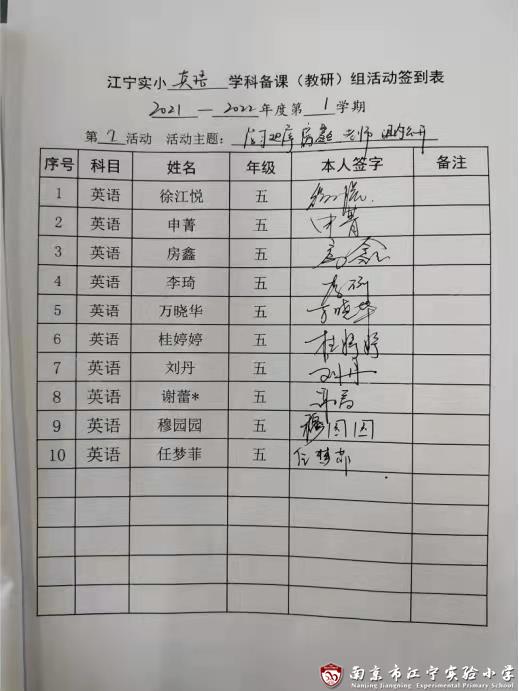 江宁实小 英语 学科备课（教研）组活动签到表
2021—2022年度第 1 学期
第 2 活动 活动主题： 房鑫 老师
序号 科目 姓名 年级 本人签字 备注
1 英语 徐江悦 五
2 英语 申菁 五 申菁
3 英语 房鑫 五 房鑫
4 英语 李琦 五 李琦
5 英语 万晓华 五 万晓华
6 英语 桂婷婷 五 桂婷婷
7 英语 刘丹 五 刘丹
8 英语 谢蕾* 五
9 英语 穆园园 五 穆园园
10 英语 任梦菲 五 任梦菲
南京市江宁实验小学
Nanjing Jiangning Experimental Primary School